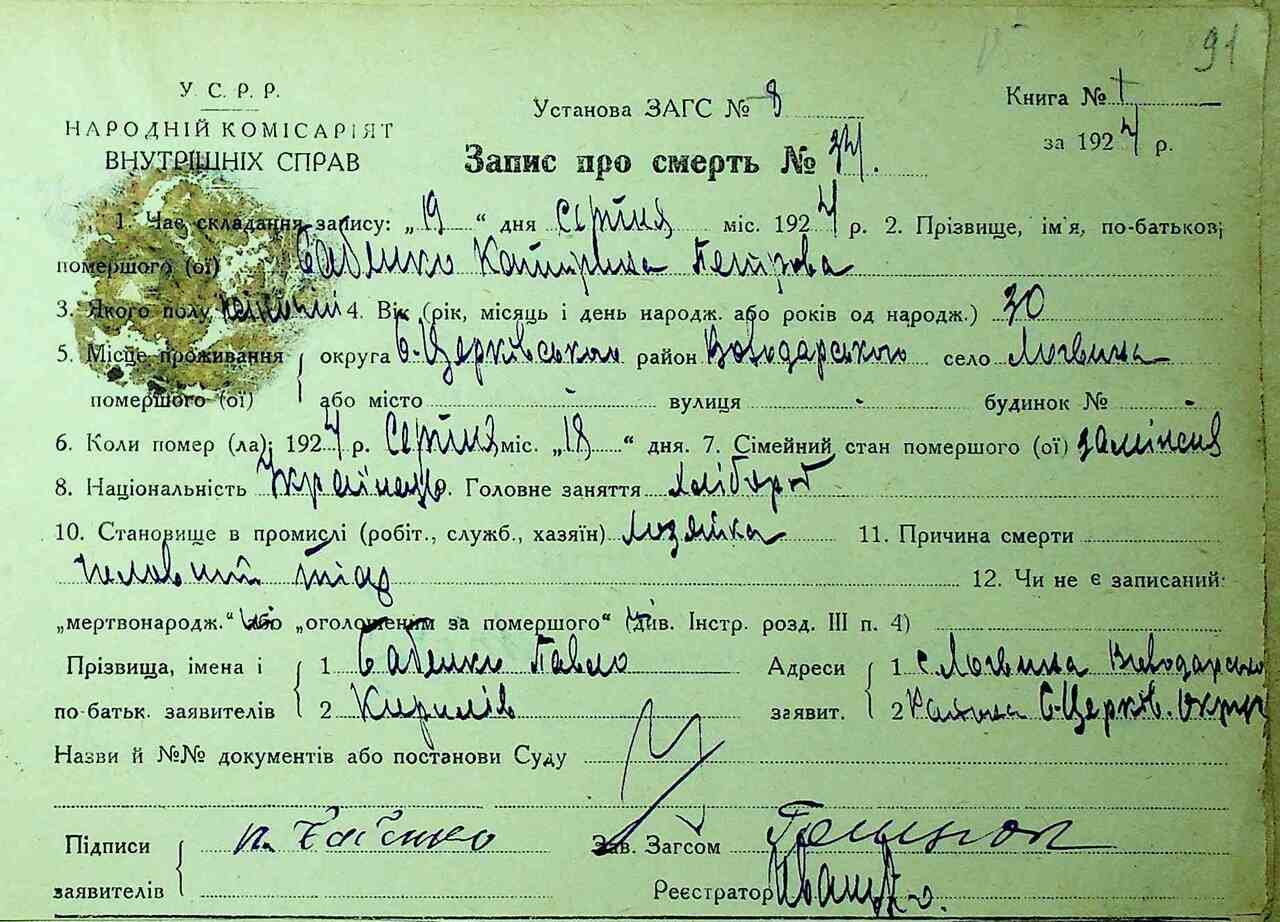 91
У С. Р. Р.
НАРОДНІЙ КОМІСАРІЯТ
ВНУТРІШНІХ СПРАВ
Установа ЗАГС № 8
Книга № 1
за 1924 р.
Запис про смерть №
1. Час складання запису: „19“ дня Серпня міс. 1924 р. 2. Прізвище, ім'я, по-батькові
помершого (ої) Бабенко Катирина Петрова
3. Якого полу 4. Вік (рік, місяць і день народж. або років од народж.) 30
5. Місце проживання помершого (ої) округа Б.-Церківського район Володарського село Логвина
або місто - вулиця - будинок № -
6. Коли помер (ла): 1924 р. Серпня міс. „18“ дня. 7. Сімейний стан помершого (ої) замінсня
8. Національність Українець. Головне заняття хлібороб
10. Становище в промислі (робіт., служб., хазяїн) хозяйка 11. Причина смерти
12. Чи не є записаний
„мертвонародж.“ або „оголошеним за помершого“ (див. Інстр. розд. III п. 4)
Прізвища, імена і по-батьк. заявителів 1 Бабенко Павло Адреси заявит. 1 с. Логвина Володарсько
2 Кирилів 2 Района Б-Церків. Округи
Назви й №№ документів або постанови Суду
Підписи заявителів п. Бабенко Зав. Загсом
Реєстратор